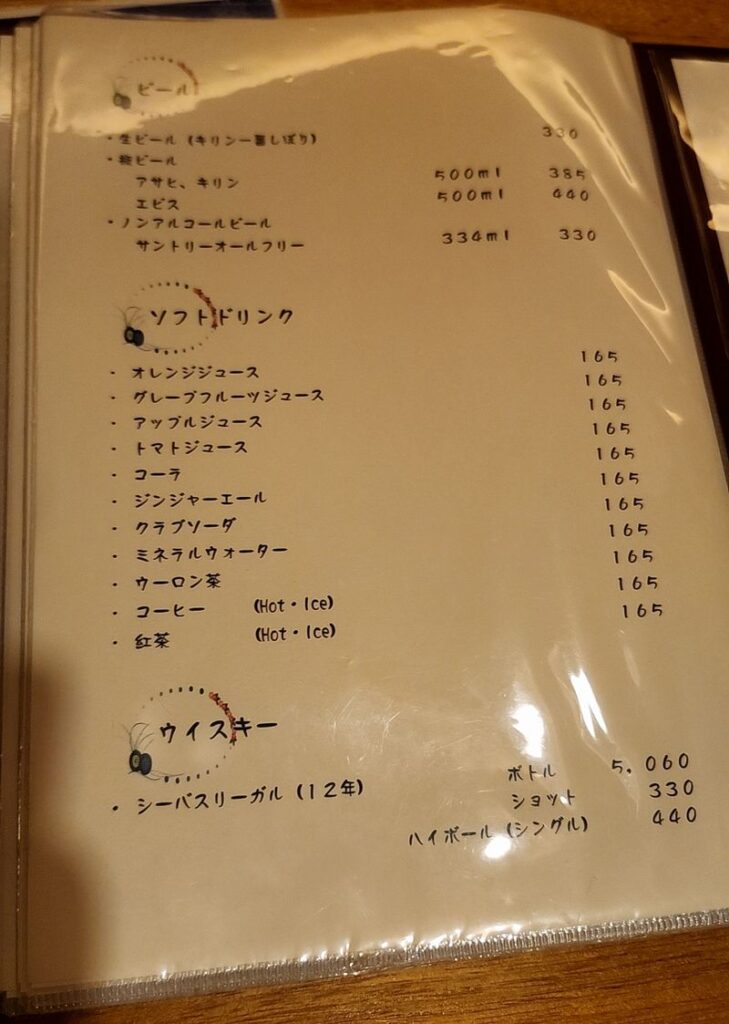 ビール
・生ビール (キリン一番しぼり) 330
・瓶ビール
アサヒ、キリン 500ml 385
エビス 500ml 440
・ノンアルコールビール
サントリーオールフリー 334ml 330
ソフトドリンク
・ オレンジジュース 165
・ グレープフルーツジュース 165
・ アップルジュース 165
・ トマトジュース 165
・ コーラ 165
・ ジンジャーエール 165
・ クラブソーダ 165
・ ミネラルウォーター 165
・ ウーロン茶 165
・ コーヒー (Hot・Ice) 165
・ 紅茶 (Hot・Ice) 165
ウイスキー
・ シーバスリーガル (12年) ボトル 5.060
ショット 330
ハイボール (シングル) 440